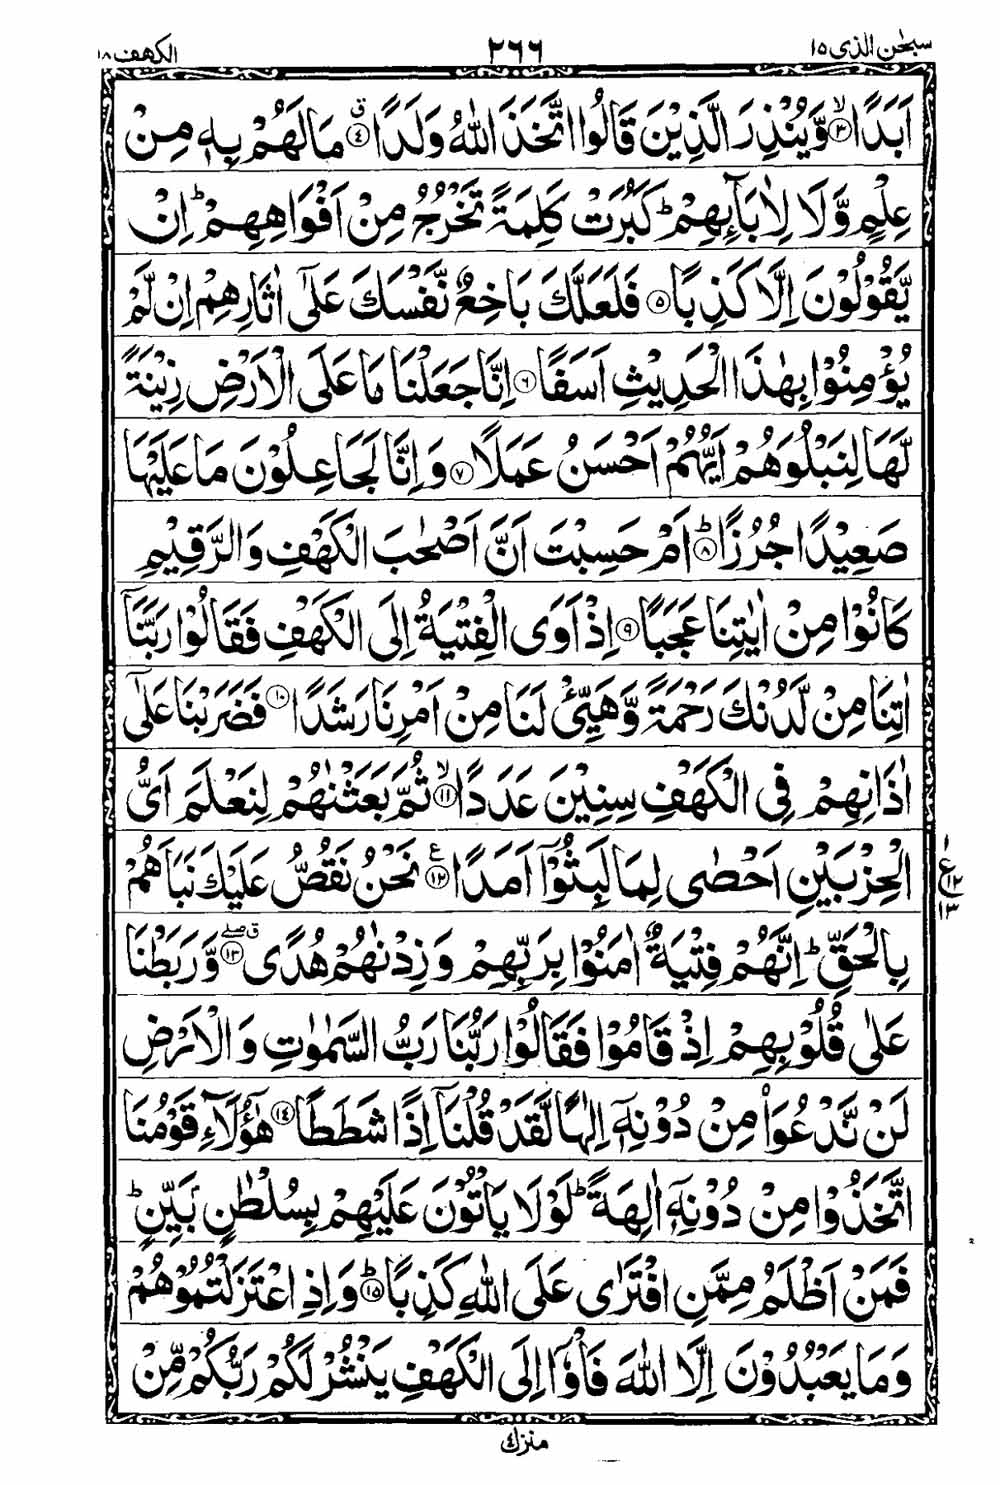 سبحٰن الذی ١٥ ٢٦٦ الكهف ١٨
اَبَدًا ۙ﴿٣﴾ وَّيُنْذِرَ الَّذِيْنَ قَالُوا اتَّخَذَ اللّٰهُ وَلَدًا ۗ﴿٤﴾ مَا لَهُمْ بِهٖ مِنْ
عِلْمٍ وَّلَا لِاٰبَآئِهِمْ ؕ كَبُرَتْ كَلِمَةً تَخْرُجُ مِنْ اَفْوَاهِهِمْ ؕ اِنْ
يَّقُوْلُوْنَ اِلَّا كَذِبًا ﴿٥﴾ فَلَعَلَّكَ بَاخِعٌ نَّفْسَكَ عَلٰٓى اٰثَارِهِمْ اِنْ لَّمْ
يُؤْمِنُوْا بِهٰذَا الْحَدِيْثِ اَسَفًا ﴿٦﴾ اِنَّا جَعَلْنَا مَا عَلَى الْاَرْضِ زِيْنَةً
لَّهَا لِنَبْلُوَهُمْ اَيُّهُمْ اَحْسَنُ عَمَلًا ﴿٧﴾ وَ اِنَّا لَجَاعِلُوْنَ مَا عَلَيْهَا
صَعِيْدًا جُرُزًا ؕ﴿٨﴾ اَمْ حَسِبْتَ اَنَّ اَصْحٰبَ الْكَهْفِ وَالرَّقِيْمِ
كَانُوْا مِنْ اٰيٰتِنَا عَجَبًا ﴿٩﴾ اِذْ اَوَى الْفِتْيَةُ اِلَى الْكَهْفِ فَقَالُوْا رَبَّنَآ
اٰتِنَا مِنْ لَّدُنْكَ رَحْمَةً وَّهَيِّئْ لَنَا مِنْ اَمْرِنَا رَشَدًا ﴿١٠﴾ فَضَرَبْنَا عَلٰٓى
اٰذَانِهِمْ فِى الْكَهْفِ سِنِيْنَ عَدَدًا ۙ﴿١١﴾ ثُمَّ بَعَثْنٰهُمْ لِنَعْلَمَ اَىُّ
الْحِزْبَيْنِ اَحْصٰى لِمَا لَبِثُوْٓا اَمَدًا ﴿١٢﴾ع نَحْنُ نَقُصُّ عَلَيْكَ نَبَاَهُمْ
١ ع ١٢ ١٣
بِالْحَقِّ ؕ اِنَّهُمْ فِتْيَةٌ اٰمَنُوْا بِرَبِّهِمْ وَزِدْنٰهُمْ هُدًى ق صلے ﴿١٣﴾ وَّرَبَطْنَا
عَلٰى قُلُوْبِهِمْ اِذْ قَامُوْا فَقَالُوْا رَبُّنَا رَبُّ السَّمٰوٰتِ وَالْاَرْضِ
لَنْ نَّدْعُوَا۟ مِنْ دُوْنِهٖٓ اِلٰهًا لَّقَدْ قُلْنَآ اِذًا شَطَطًا ﴿١٤﴾ هٰٓؤُلَآءِ قَوْمُنَا
اتَّخَذُوْا مِنْ دُوْنِهٖٓ اٰلِهَةً ؕ لَوْلَا يَاْتُوْنَ عَلَيْهِمْ بِسُلْطٰنٍۭ بَيِّنٍ ؕ
فَمَنْ اَظْلَمُ مِمَّنِ افْتَرٰى عَلَى اللّٰهِ كَذِبًا ؕ﴿١٥﴾ وَاِذِ اعْتَزَلْتُمُوْهُمْ
وَمَا يَعْبُدُوْنَ اِلَّا اللّٰهَ فَاْوٗٓا اِلَى الْكَهْفِ يَنْشُرْ لَكُمْ رَبُّكُمْ مِّنْ
منزل ٤